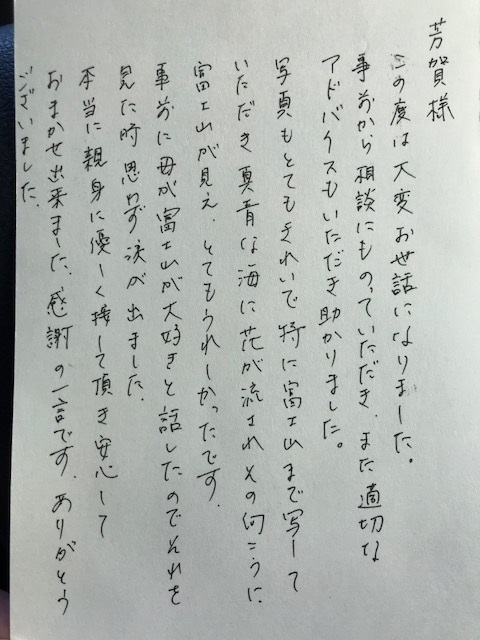 芳賀様
この度は大変お世話になりました。
事前から相談にものっていただき、また適切な
アドバイスもいただき助かりました。
写真もとてもきれいで特に富士山まで写して
いただき真青な海に花が流されその向こうに
富士山が見え、とてもうれしかったです。
事前に母が富士山が大好きと話したのでそれを
見た時思わず涙が出ました。
本当に親身に優しく接して頂き安心して
おまかせ出来ました。感謝の一言です。ありがとう
ございました。